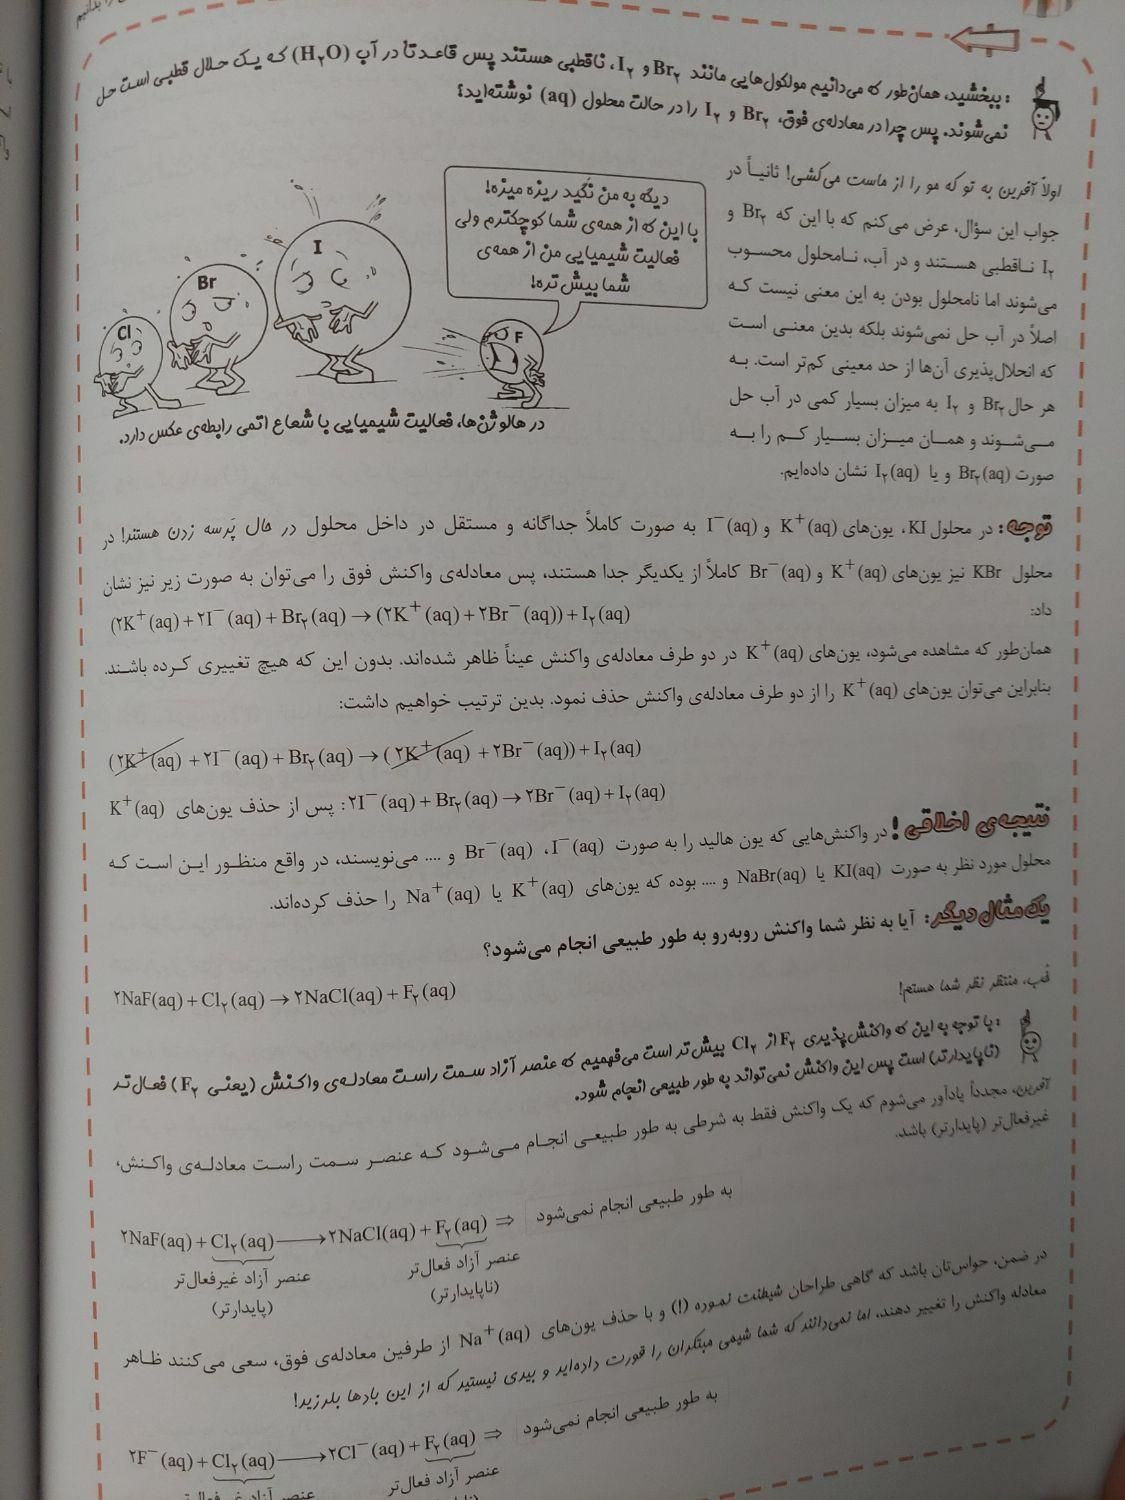 را بدانیم
: ببخشید، همان‌طور که می‌دانیم مولکول‌هایی مانند Br۲ و I۲، ناقطبی هستند پس قاعدتاً در آب (H۲O) که یک حلال قطبی است حل
نمی‌شوند. پس چرا در معادله‌ی فوق، Br۲ و I۲ را در حالت محلول (aq) نوشته‌اید؟
اولاً آفرین به تو که مو را از ماست می‌کشی! ثانیاً در
جواب این سؤال، عرض می‌کنم که با این که Br۲ و
I۲ ناقطبی هستند و در آب، نامحلول محسوب
می‌شوند اما نامحلول بودن به این معنی نیست که
اصلاً در آب حل نمی‌شوند بلکه بدین معنی است
که انحلال‌پذیری آن‌ها از حد معینی کم‌تر است. به
هر حال Br۲ و I۲ به میزان بسیار کمی در آب حل
می‌شوند و همان میزان بسیار کم را به
صورت Br۲(aq) و یا I۲(aq) نشان داده‌ایم.
دیگه به من نگید ریزه میزه!
با این که از همه‌ی شما کوچکترم ولی
فعالیت شیمیایی من از همه‌ی
شما بیش تره!
F
I
Br
Cl
در هالوژن‌ها، فعالیت شیمیایی با شعاع اتمی رابطه‌ی عکس دارد.
توجه: در محلول KI، یون‌های K+(aq) و I−(aq) به صورت کاملاً جداگانه و مستقل در داخل محلول در حال پَرسه زدن هستند! در
محلول KBr نیز یون‌های K+(aq) و Br−(aq) کاملاً از یکدیگر جدا هستند، پس معادله‌ی واکنش فوق را می‌توان به صورت زیر نیز نشان
داد:
(۲K+(aq) + ۲I−(aq) + Br۲(aq) → (۲K+(aq) + ۲Br−(aq)) + I۲(aq)
همان‌طور که مشاهده می‌شود، یون‌های K+(aq) در دو طرف معادله‌ی واکنش عیناً ظاهر شده‌اند. بدون این که هیچ تغییری کرده باشند.
بنابراین می‌توان یون‌های K+(aq) را از دو طرف معادله‌ی واکنش حذف نمود. بدین ترتیب خواهیم داشت:
(۲K+(aq) + ۲I−(aq) + Br۲(aq) → (۲K+(aq) + ۲Br−(aq)) + I۲(aq)
۲I−(aq) + Br۲(aq) → ۲Br−(aq) + I۲(aq) : پس از حذف یون‌های K+(aq)
نتیجه‌ی اخلاقی! در واکنش‌هایی که یون هالید را به صورت I−(aq)، Br−(aq) و .... می‌نویسند، در واقع منظور این است که
محلول مورد نظر به صورت KI(aq) یا NaBr(aq) و .... بوده که یون‌های K+(aq) یا Na+(aq) را حذف کرده‌اند.
یک مثال دیگر: آیا به نظر شما واکنش روبه‌رو به طور طبیعی انجام می‌شود؟
۲NaF(aq) + Cl۲(aq) → ۲NaCl(aq) + F۲(aq)
خب، منتظر نظر شما هستم!
: با توجه به این که واکنش‌پذیری F۲ از Cl۲ بیش‌تر است می‌فهمیم که عنصر آزاد سمت راست معادله‌ی واکنش (یعنی F۲) فعال‌تر
(ناپایدارتر) است پس این واکنش نمی‌تواند به طور طبیعی انجام شود.
آفرین، مجدداً یادآور می‌شوم که یک واکنش فقط به شرطی به طور طبیعی انجام می‌شود که عنصر سمت راست معادله‌ی واکنش،
غیرفعال‌تر (پایدارتر) باشد.
۲NaF(aq) + Cl۲(aq) → ۲NaCl(aq) + F۲(aq) ⇒ به طور طبیعی انجام نمی‌شود
عنصر آزاد غیرفعال‌تر عنصر آزاد فعال‌تر
(پایدارتر) (ناپایدارتر)
در ضمن، حواس‌تان باشد که گاهی طراحان شیطنت نموده (!) و با حذف یون‌های Na+(aq) از طرفین معادله‌ی فوق، سعی می‌کنند ظاهر
معادله واکنش را تغییر دهند، اما نمی‌دانند که شما شیمی مبتکران را قورت داده‌اید و بیدی نیستید که از این بادها بلرزید!
۲F−(aq) + Cl۲(aq) → ۲Cl−(aq) + F۲(aq) ⇒ به طور طبیعی انجام نمی‌شود
عنصر آزاد غیرفعال‌تر عنصر آزاد فعال‌تر